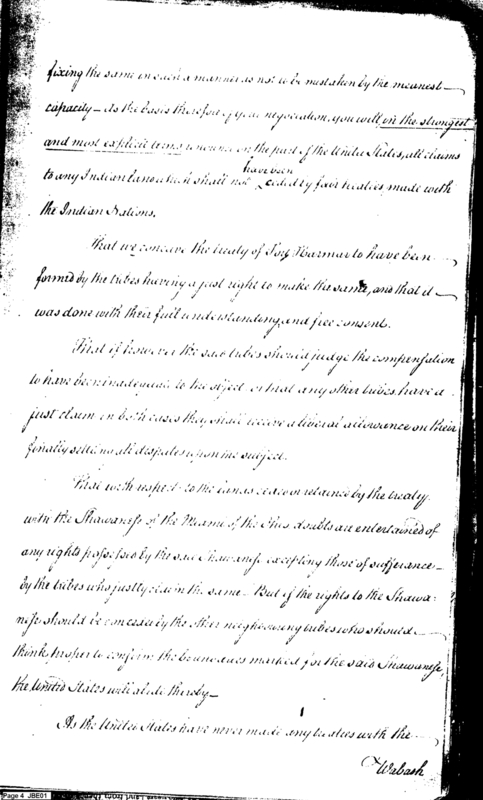 fixing the same in such a manner as not to be mistaken by the meanest
capacity – As the basis therefore of your negociation, you will, in the strongest
and most explicit terms renounce on the part of the United States, all claims
to any Indian land which shall not have been ceded by fair treaties made with
the Indian Nations.
That we conceive the treaty of Fort Harmar to have been
formed by the tribes having a just right to make the same, and that it
was done with their full understanding and free consent.
That if however the said tribes should judge the compensation
to have been inadequate to the object or that any other tribes have a
just claim in both cases they shall receive a liberal allowance on their
finally settling all disputes upon the subject.
That with respect to the lands ceded or retained by the treaty
with the Shawanese of the Miami of the Ohio doubts are entertained of
any rights possessed by the said Shawanese excepting those of sufferance
by the tribes who justly claim the same – But if the rights to the Shawa-
nese should be conceded by the other neighbouring tribes who should
think proper to confirm the boundaries marked for the said Shawanese,
the United States will abide thereby –
As the United States have never made any treaties with the
Wabash
Page 4 JBE01